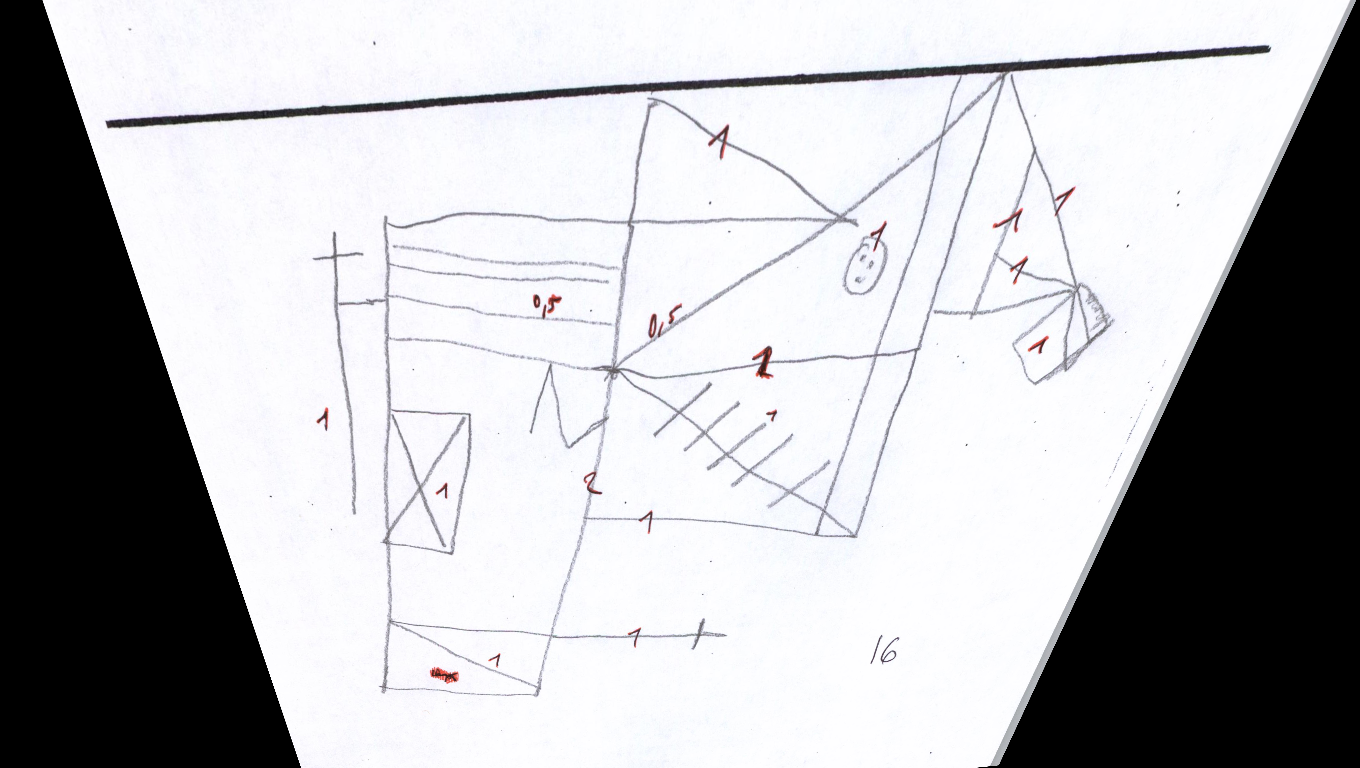 1
1
1
1
1
0,5
0,5
1
1
1
1
1
2
1
1
1
16